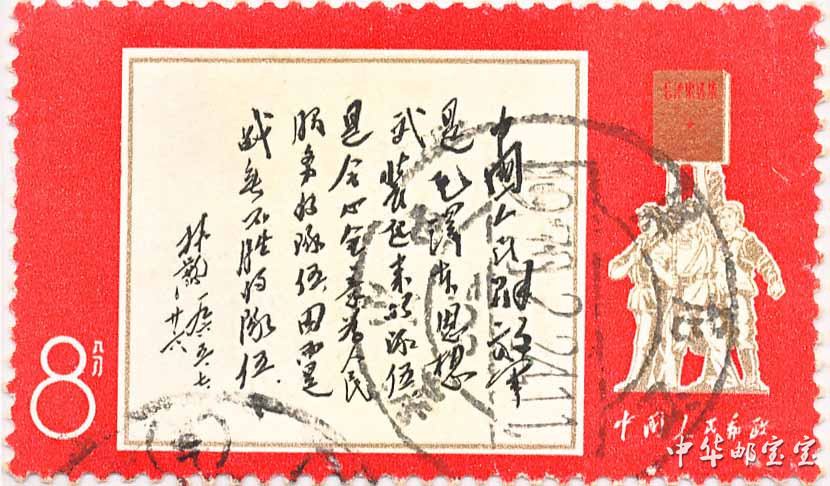 中國人民解放軍
是毛澤东思想
武裝起来的隊伍。
是全心全意为人民
服务的隊伍,因而是
战无不胜的隊伍.
林彪
一九六五、七、
廿六
毛泽东选集
8
八分
中国人民邮政
中华邮宝宝